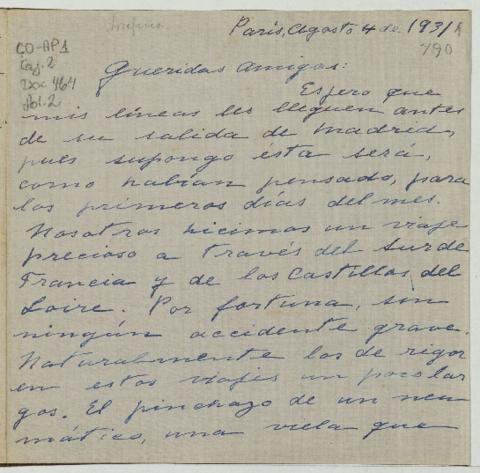 París, Agosto 4 de 1931
790
CO-AP1
Caj. 2
Doc 464
fol. 2
Queridos amigos:
Espero que
mis líneas les lleguen antes
de su salida de Madrid,
pues supongo ésta será,
como habían pensado, para
los primeros días del mes.
Nosotros hicimos un viaje
precioso a través del Sur de
Francia y de los Castillos del
Loire. Por fortuna, sin
ningún accidente grave.
Naturalmente los de rigor
en estos viajes un poco lar
gos. El pinchazo de un neu
mático, una que